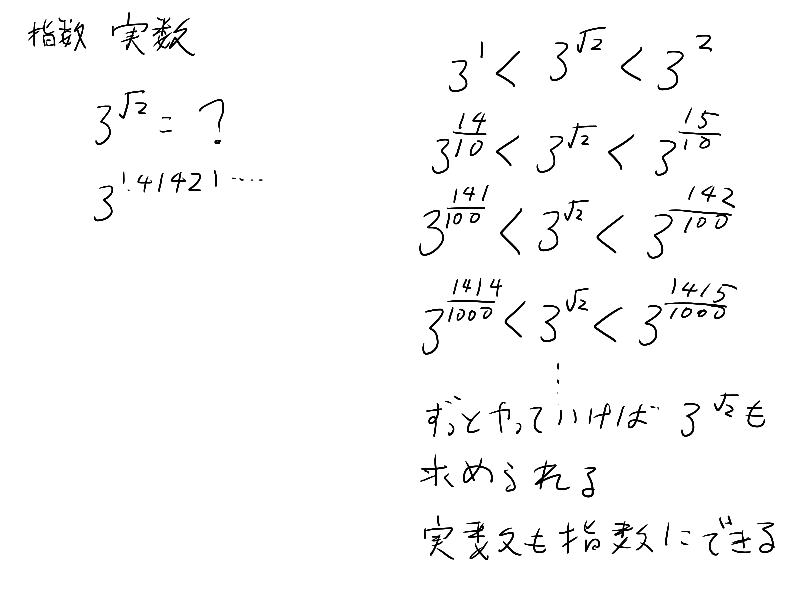 指数 実数
3^√2 = ?
3^1.41421....
3^1 < 3^√2 < 3^2
3^14/10 < 3^√2 < 3^15/10
3^141/100 < 3^√2 < 3^142/100
3^1414/1000 < 3^√2 < 3^1415/1000
ずっとやっていけば 3^√2も
求められる
実数も指数にできる